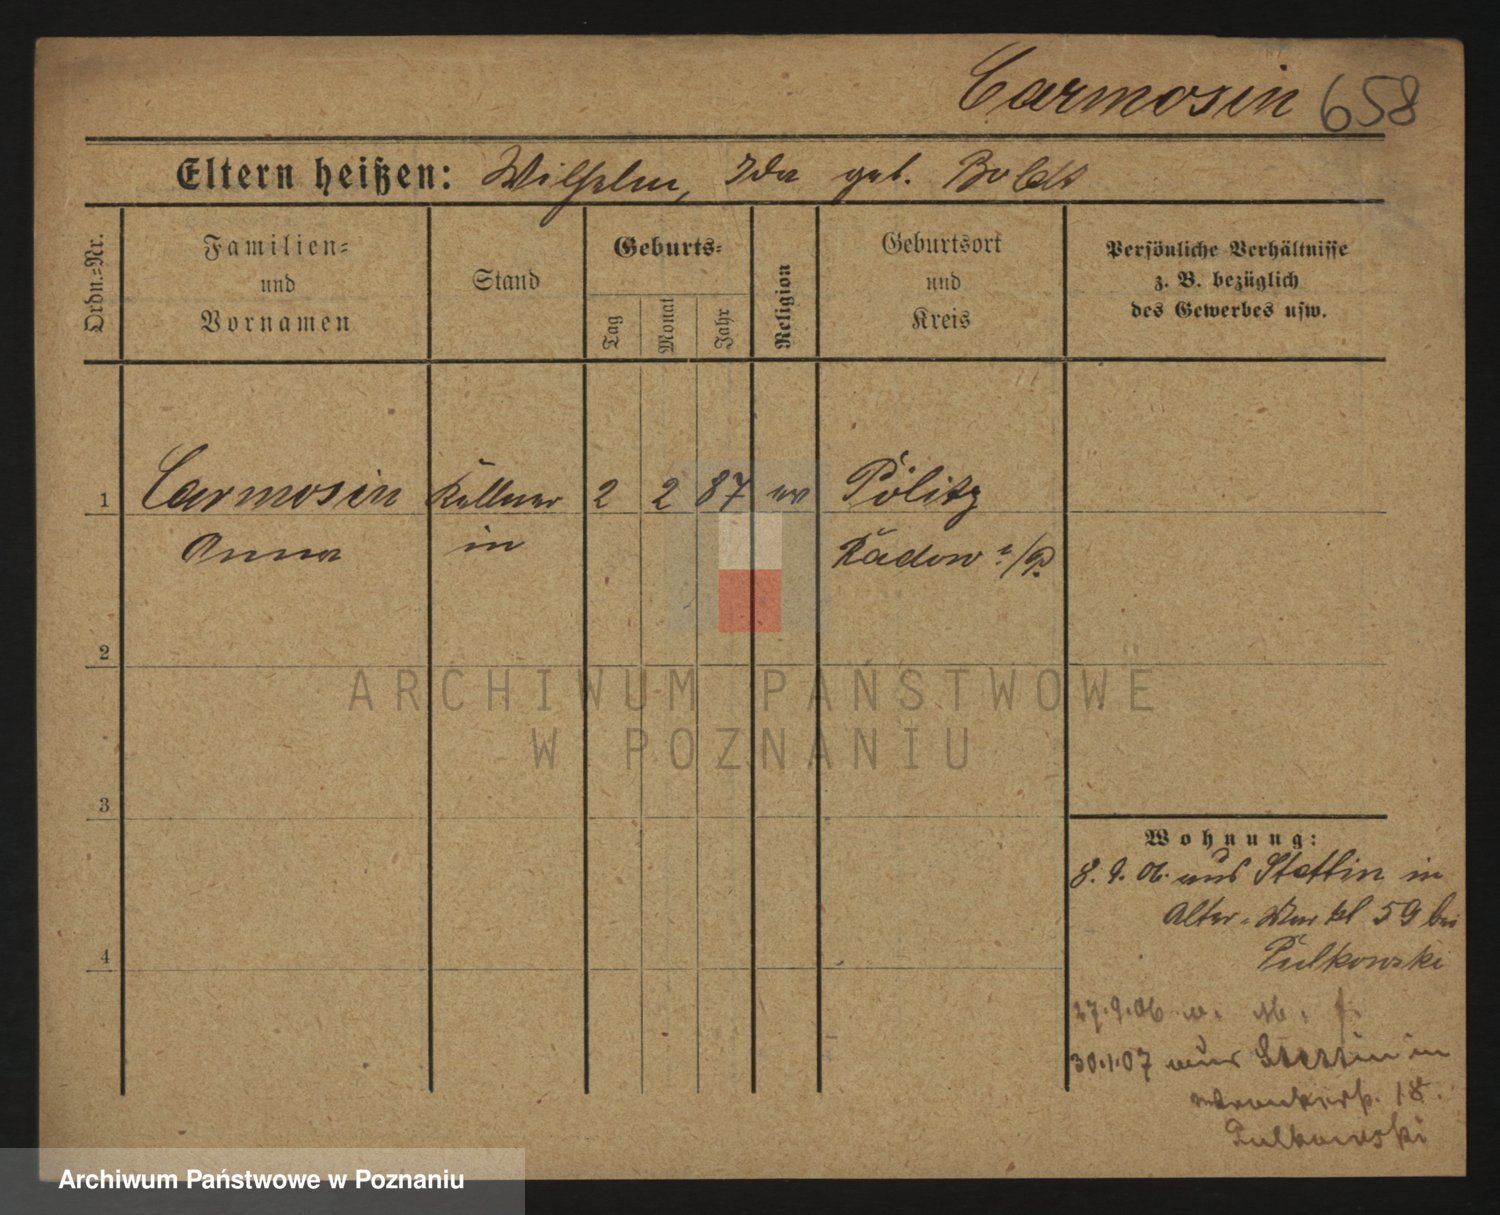 Carmosin 658
Eltern heißen: Wilhelm, Ida geb. Boldt
Ordn.=Nr.
Familien=
und
Vornamen
Stand
Geburts=
Tag
Monat
Jahr
Religion
Geburtsort
und
Kreis
Persönliche Verhältnisse
z. B. bezüglich
des Gewerbes usw.
1 Carmosin Kellner 2 2 87 ev Pölitz
Anna in
2
3
4
Wohnung:
8. 9. 06. aus Stettin in
Alter-Markt 59 bei
Pulkowski
27.9.06
30.1.07 aus Stettin in
18.
Pulkowski
ARCHIWUM PAŃSTWOWE
W POZNANIU
Archiwum Państwowe w Poznaniu